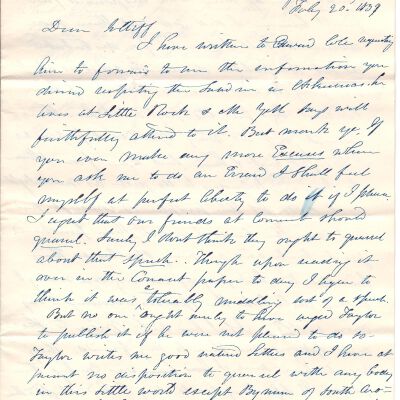 July 20. 1839
Dear
I have written to Edward Cole requesting
him to furnish to me the information you
desired respecting the land in in Arkansas. he
lives at Little Rock & Mr Yell says will
faithfully attend to it. But mark ye. If
you ever make any more Excuses when
you ask me to do an errand I shall feel
myself at perfect liberty to do it if I please.
I regret that our friends at Concord should
quarrel. Surely I dont think they ought to quarrel
about that speech. Though upon reading it
over in the paper to day I agree to
think it was tolerably middling sort of a speech.
But no one ought surely to have urged Taylor
to publish it if he were not pleased to do so.
Taylor writes me good natured letters and I have at
present no disposition to quarrel with any body
in this little world except Bynum of South Caro-